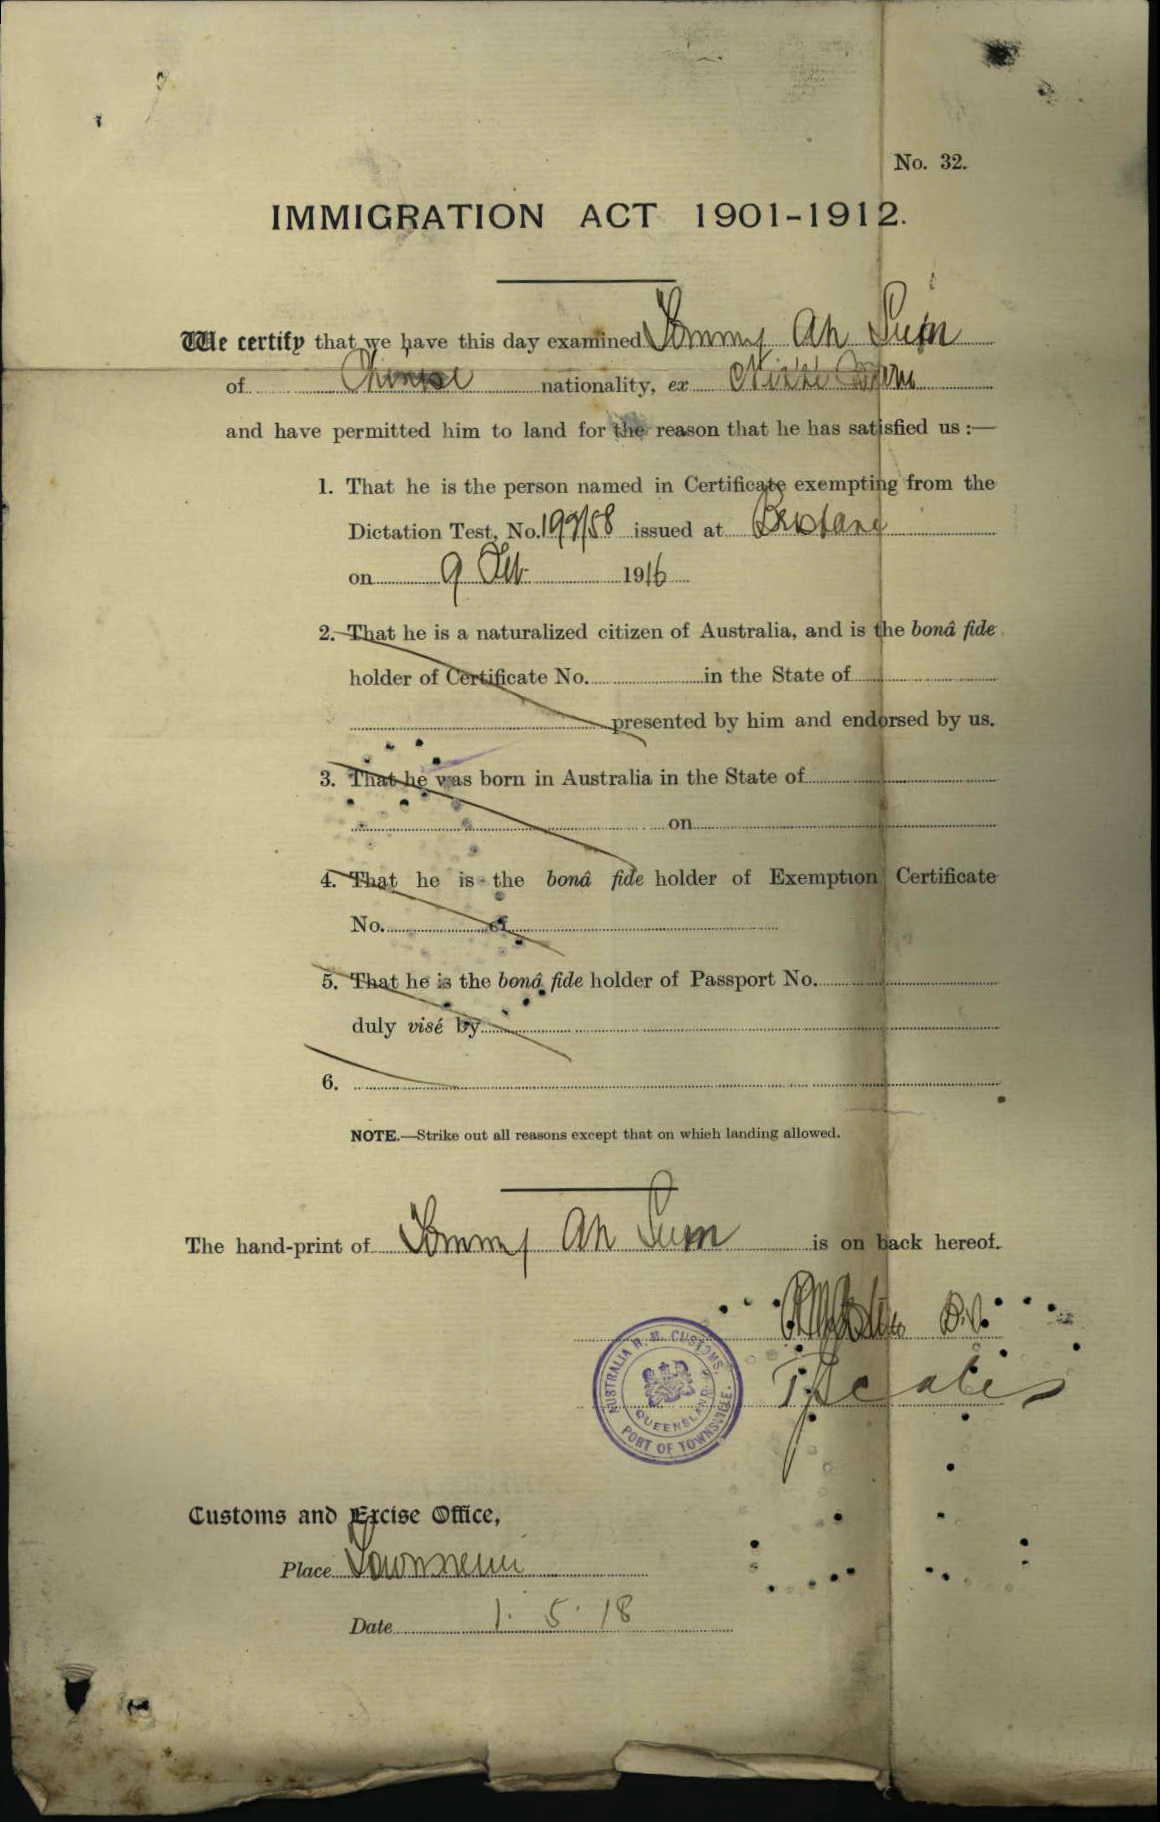 No. 32.
IMMIGRATION ACT 1901-1912.
We certify that we have this day examined Tommy Ah Sum
of Chinese nationality, ex Nikko Maru
and have permitted him to land for the reason that he has satisfied us :—
1. That he is the person named in Certificate exempting from the
Dictation Test, No. 199/58 issued at Brisbane
on 9 Feb 1916
2. That he is a naturalized citizen of Australia, and is the bonâ fide
holder of Certificate No. in the State of
presented by him and endorsed by us.
3. That he was born in Australia in the State of
on
4. That he is the bonâ fide holder of Exemption Certificate
No. of
5. That he is the bonâ fide holder of Passport No.
duly visé by
6.
NOTE.—Strike out all reasons except that on which landing allowed.
The hand-print of Tommy Ah Sum is on back hereof.
AUSTRALIA H. M. CUSTOMS.
QUEENSLAND
PORT OF TOWNSVILLE.
Customs and Excise Office,
Place Townsville
Date 1. 5. 18